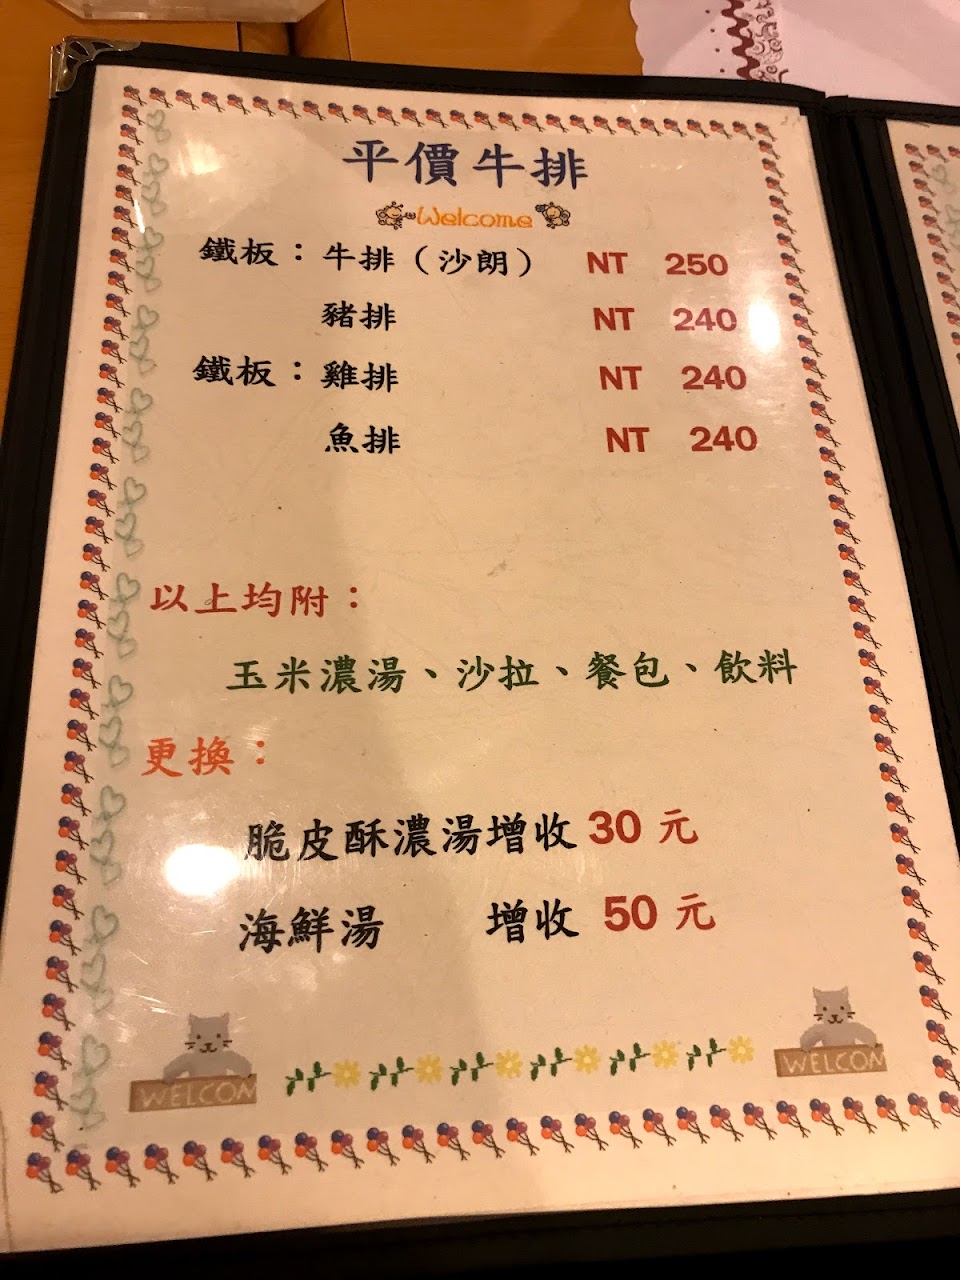 平價牛排
Welcome
鐵板：牛排（沙朗） NT 250
豬排 NT 240
鐵板：雞排 NT 240
魚排 NT 240
以上均附：
玉米濃湯、沙拉、餐包、飲料
更換：
脆皮酥濃湯增收 30 元
海鮮湯 增收 50 元
WELCOM WELCOM